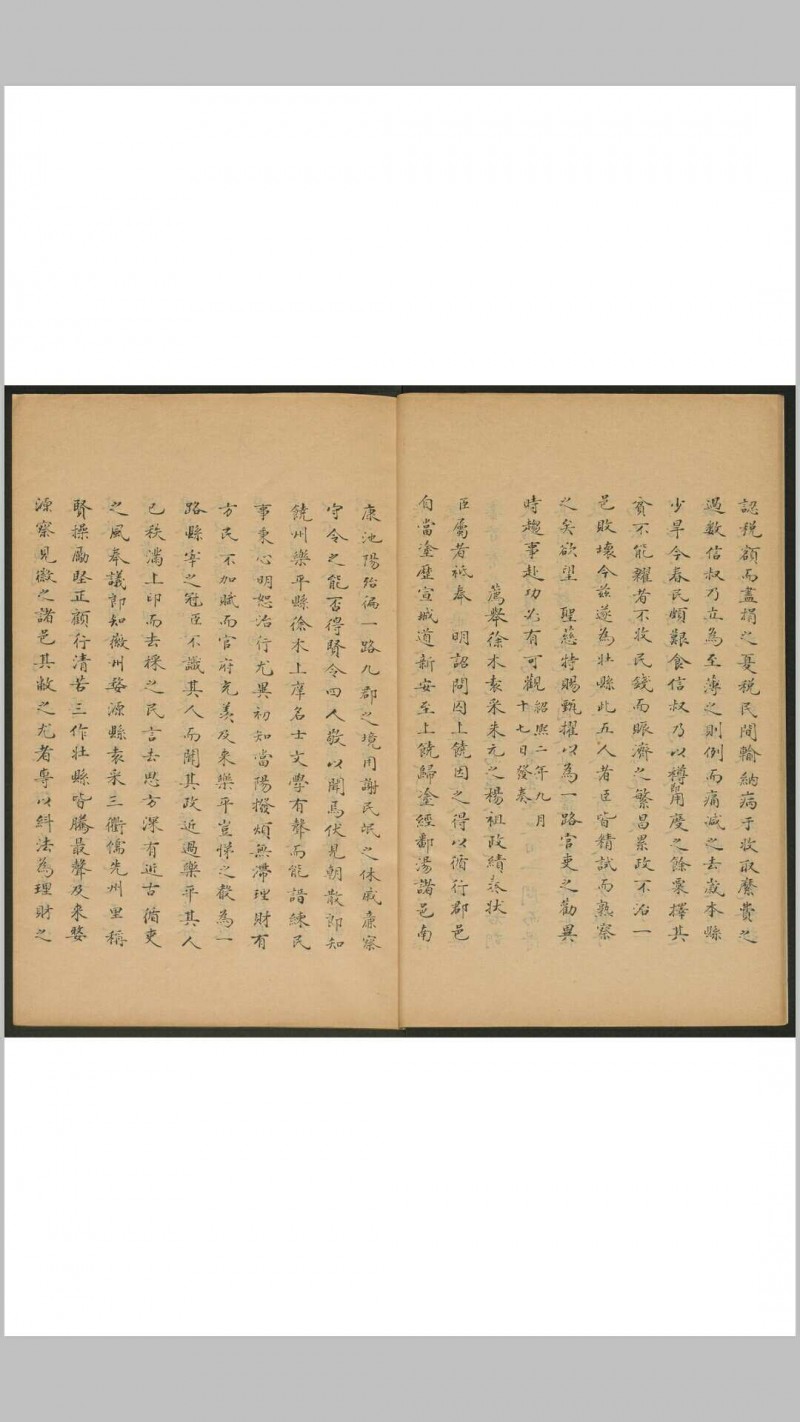 認税額而盡捐之憂税民間輸納病于收取縻費之
過數信叔乃立為至薄之則例而痛減之去歲本縣
少旱今春民頗艱食信叔乃以樽節用度之餘粟擇其
貧不能糴者不收民錢而賑濟之繁昌累政不治一
邑敗壞今茲遂為壯縣此五人者臣皆精試而熟察
之矣欲望 聖慈特賜甄擢以為一路官吏之勸異
時趨事赴功必有可觀紹熙二年九月
十七日發奏
薦舉徐木袁采朱元之楊祖政績奏狀
臣厲者祗奉 明詔問囚上饒因之得以循行郡邑
自當塗歷宣城道新安至上饒歸塗經鄱湯諸邑南
康池陽殆徧一路九郡之境用謝民氓之休戚廉察
守令之能否得賢令四人敬以聞焉伏見朝散郎知
饒州樂平縣徐木上庠名士文學有聲而能諳練民
事秉心明恕治行尤異初知當陽撥煩無滯理財有
方民不加賦而官府充羡及来樂平豈悌之政為一
路縣宰之冠臣不識其人而聞其政近過樂平其人
已秩滿上印而去採之民言去思方深有近古循吏
之風奉議郎知徽州婺源縣袁采三衢儒先州里稱
賢操勵堅正顧行清苦三作壯縣皆騰最聲及来婺
源察見徽之諸邑其敝之尤者專以糾法為理財之